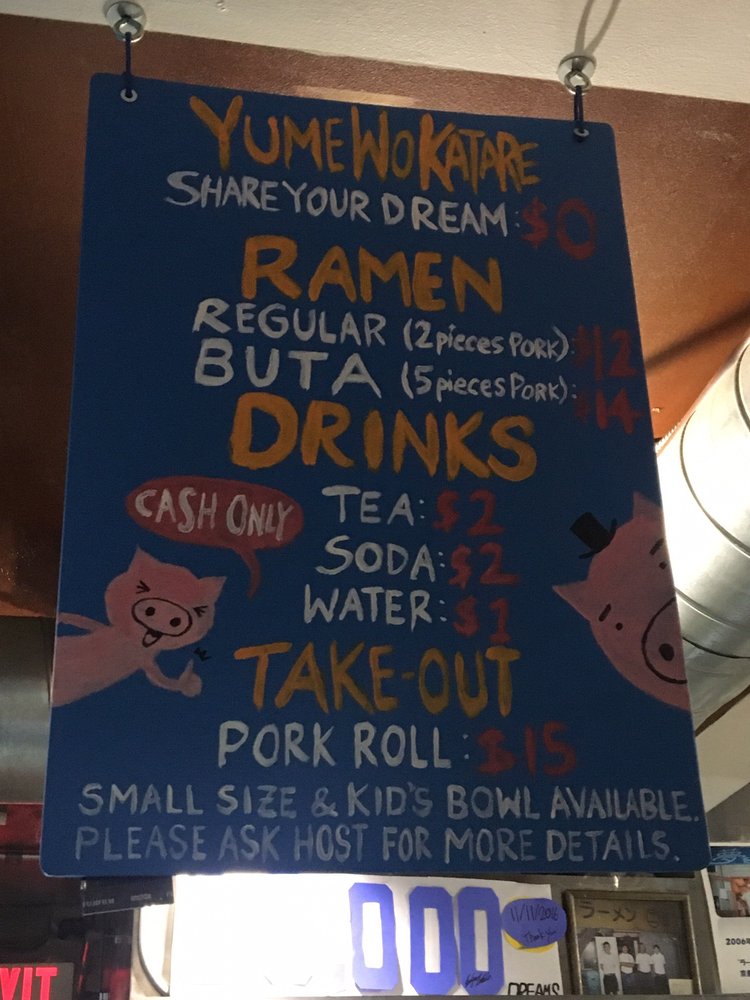 YUMEWOKATARE
SHARE YOUR DREAM: $0
RAMEN
REGULAR (2 pieces PORK): $12
BUTA (5 pieces PORK): $14
DRINKS
CASH ONLY
TEA: $2
SODA: $2
WATER: $1
TAKE-OUT
PORK ROLL: $15
SMALL SIZE & KID'S BOWL AVAILABLE.
PLEASE ASK HOST FOR MORE DETAILS.
000
11/11/2016
Thank You
DREAMS
ラーメン
2006年
XIT